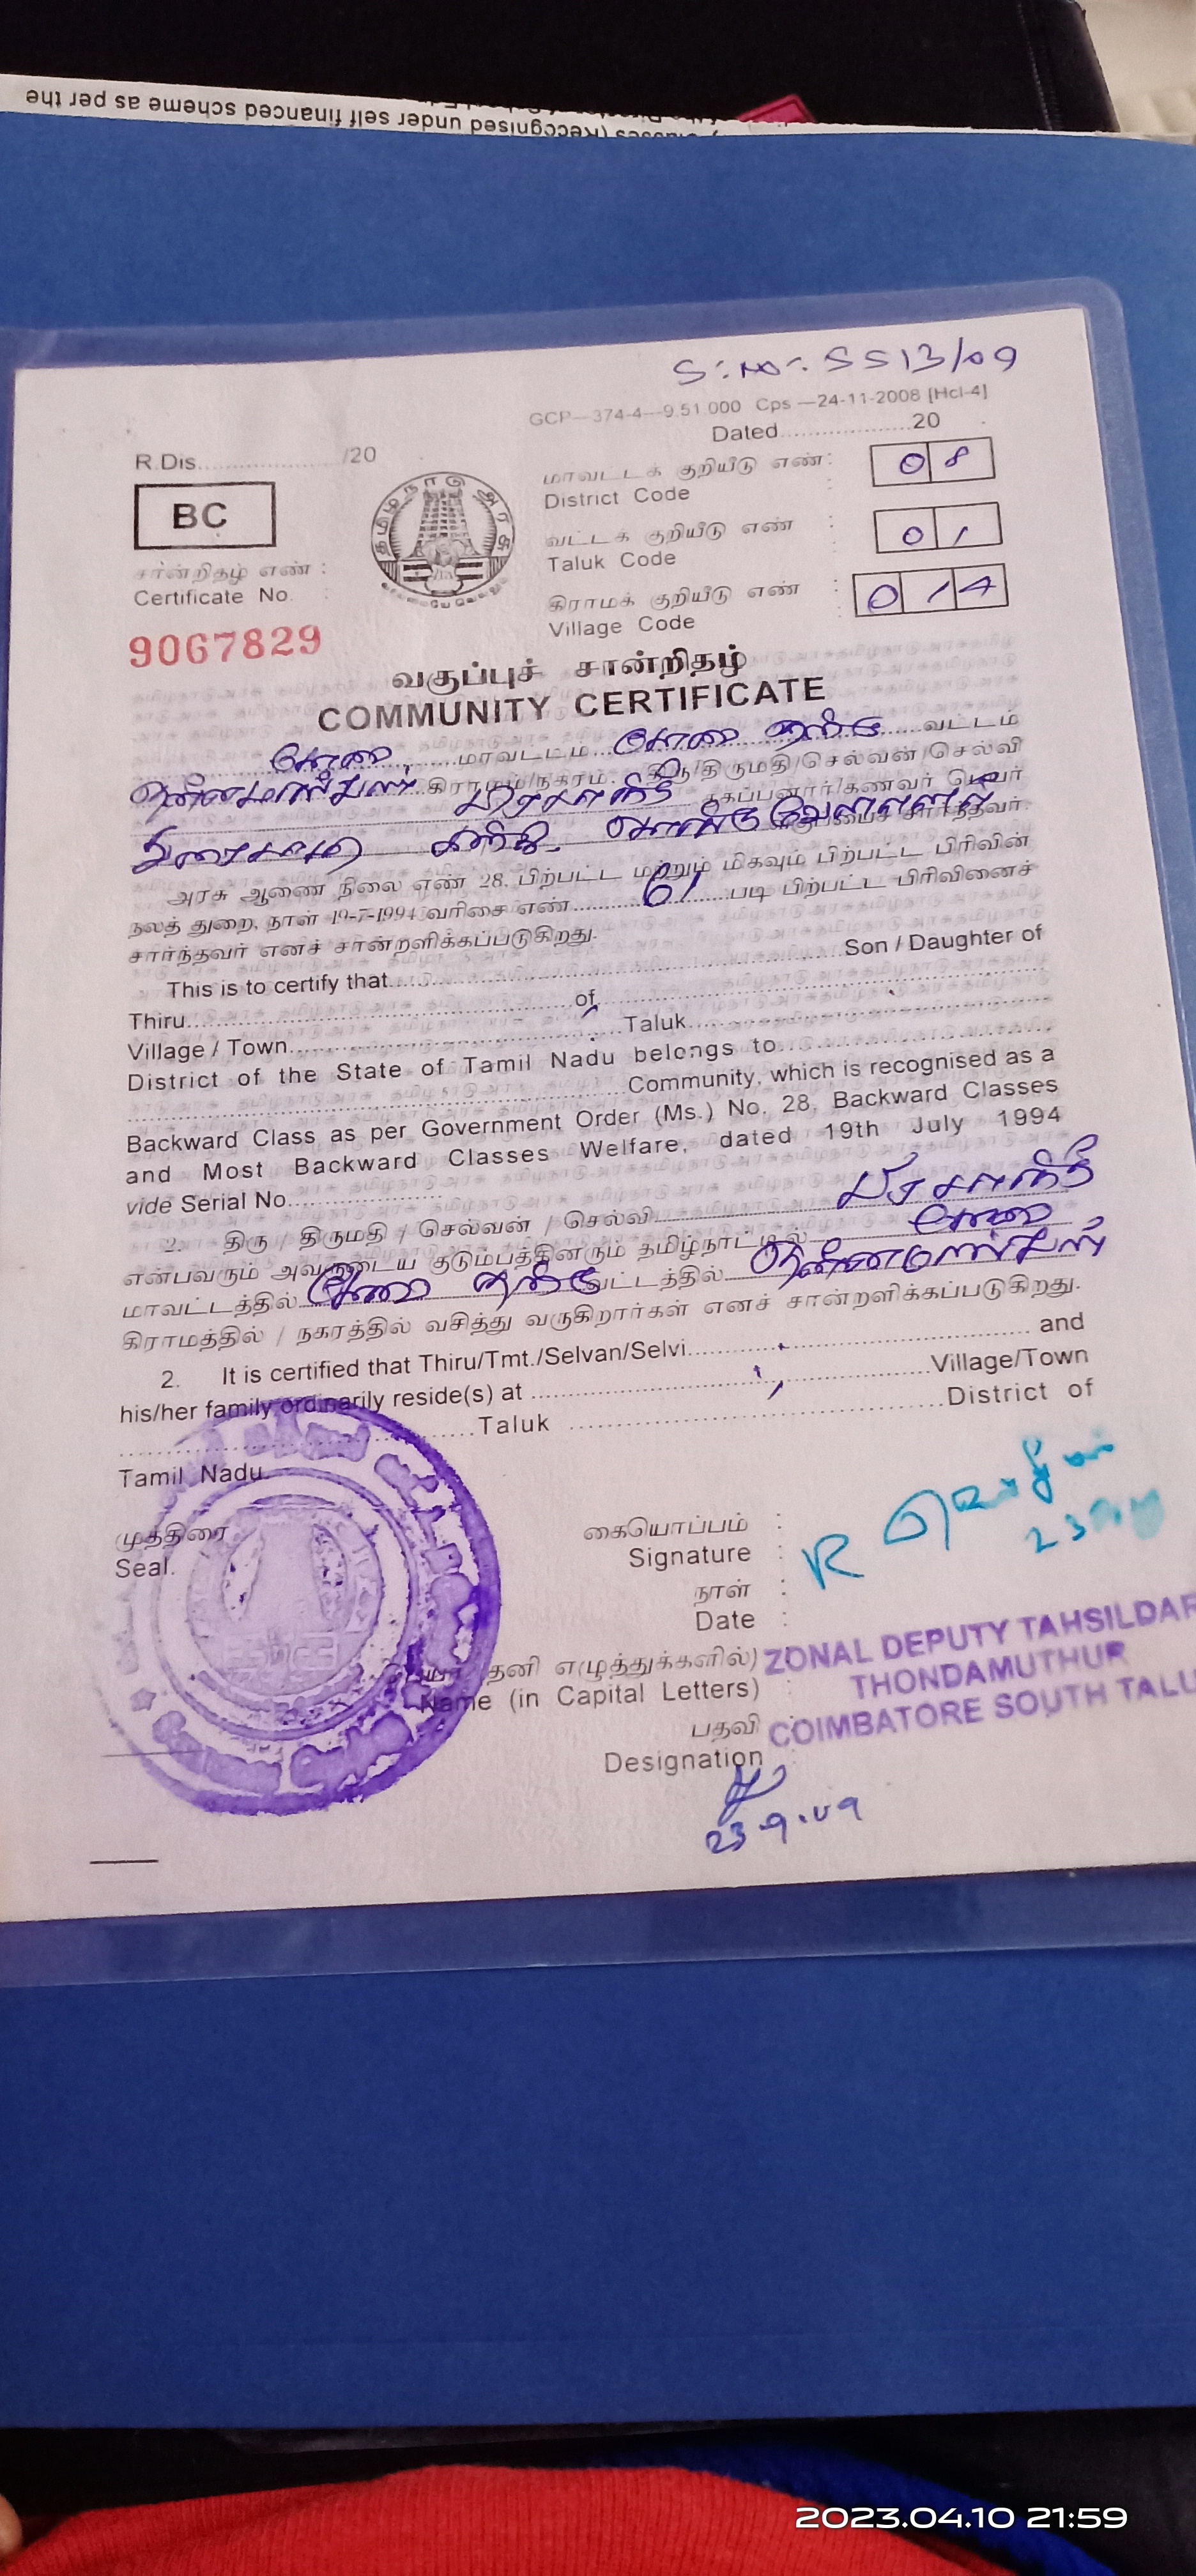 Classes (Recognised under self financed scheme as per the
S.No. 5513/09
GCP—374-4—9.51.000 Cps —24-11-2008 [Hcl-4]
R.Dis....................../20
Dated....................20
BC
தமிழ்நாடு அரசு
மாவட்டக் குறியீடு எண் :
District Code
08
வட்டக் குறியீடு எண் :
Taluk Code
01
சான்றிதழ் எண் :
Certificate No. :
கிராமக் குறியீடு எண் :
Village Code
014
9067829
வகுப்புச் சான்றிதழ்
COMMUNITY CERTIFICATE
கோவை மாவட்டம் கோவை தெற்கு வட்டம்
கிராமம்/நகரம். திரு/திருமதி/செல்வன்/செல்வி
பிரசாந்த் தகப்பனார்/கணவர் பெயர்
துரைசாமி வகுப்பைச் சார்ந்தவர்.
அரசு ஆணை நிலை எண் 28, பிற்பட்ட மற்றும் மிகவும் பிற்பட்ட பிரிவின்
நலத் துறை, நாள் 19-7-1994 வரிசை எண் 61 படி பிற்பட்ட பிரிவினைச்
சார்ந்தவர் எனச் சான்றளிக்கப்படுகிறது.
This is to certify that.......................Son / Daughter of
Thiru.......................of.......................
Village / Town.......................Taluk.......................
District of the State of Tamil Nadu belongs to.......................
.......................Community, which is recognised as a
Backward Class as per Government Order (Ms.) No. 28, Backward Classes
and Most Backward Classes Welfare, dated 19th July 1994
vide Serial No.......................
2. திரு / திருமதி / செல்வன் / செல்வி பிரசாந்த்
என்பவரும் அவருடைய குடும்பத்தினரும் தமிழ்நாட்டில் கோவை
மாவட்டத்தில் கோவை தெற்கு வட்டத்தில்
கிராமத்தில் / நகரத்தில் வசித்து வருகிறார்கள் எனச் சான்றளிக்கப்படுகிறது.
2. It is certified that Thiru/Tmt./Selvan/Selvi.......................and
his/her family ordinarily reside(s) at .......................Village/Town
.......................Taluk .......................District of
Tamil Nadu.
முத்திரை
Seal.
கையொப்பம் :
Signature :
நாள் :
Date :
ZONAL DEPUTY TAHSILDAR
தனி எழுத்துக்களில்)
THONDAMUTHUR
Name (in Capital Letters) :
COIMBATORE SOUTH TALU
பதவி
Designation :
23.9.09
2023.04.10 21:59